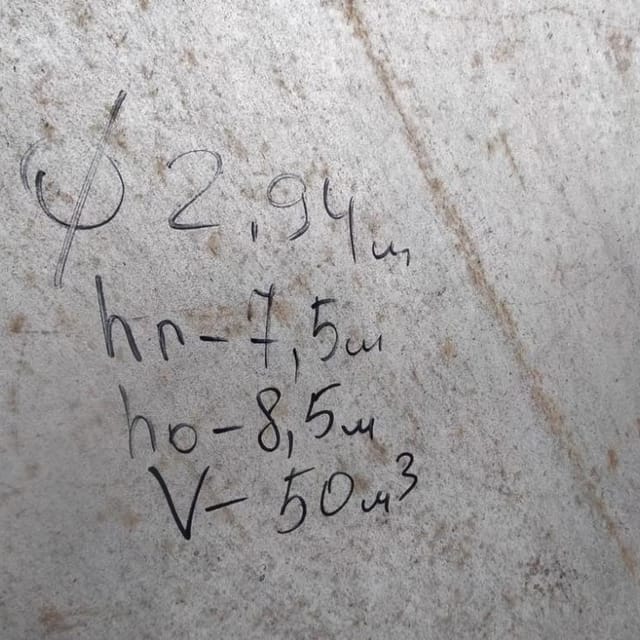 Ø 2,94 м
hп - 7,5 м
hо - 8,5 м
V - 50 м³